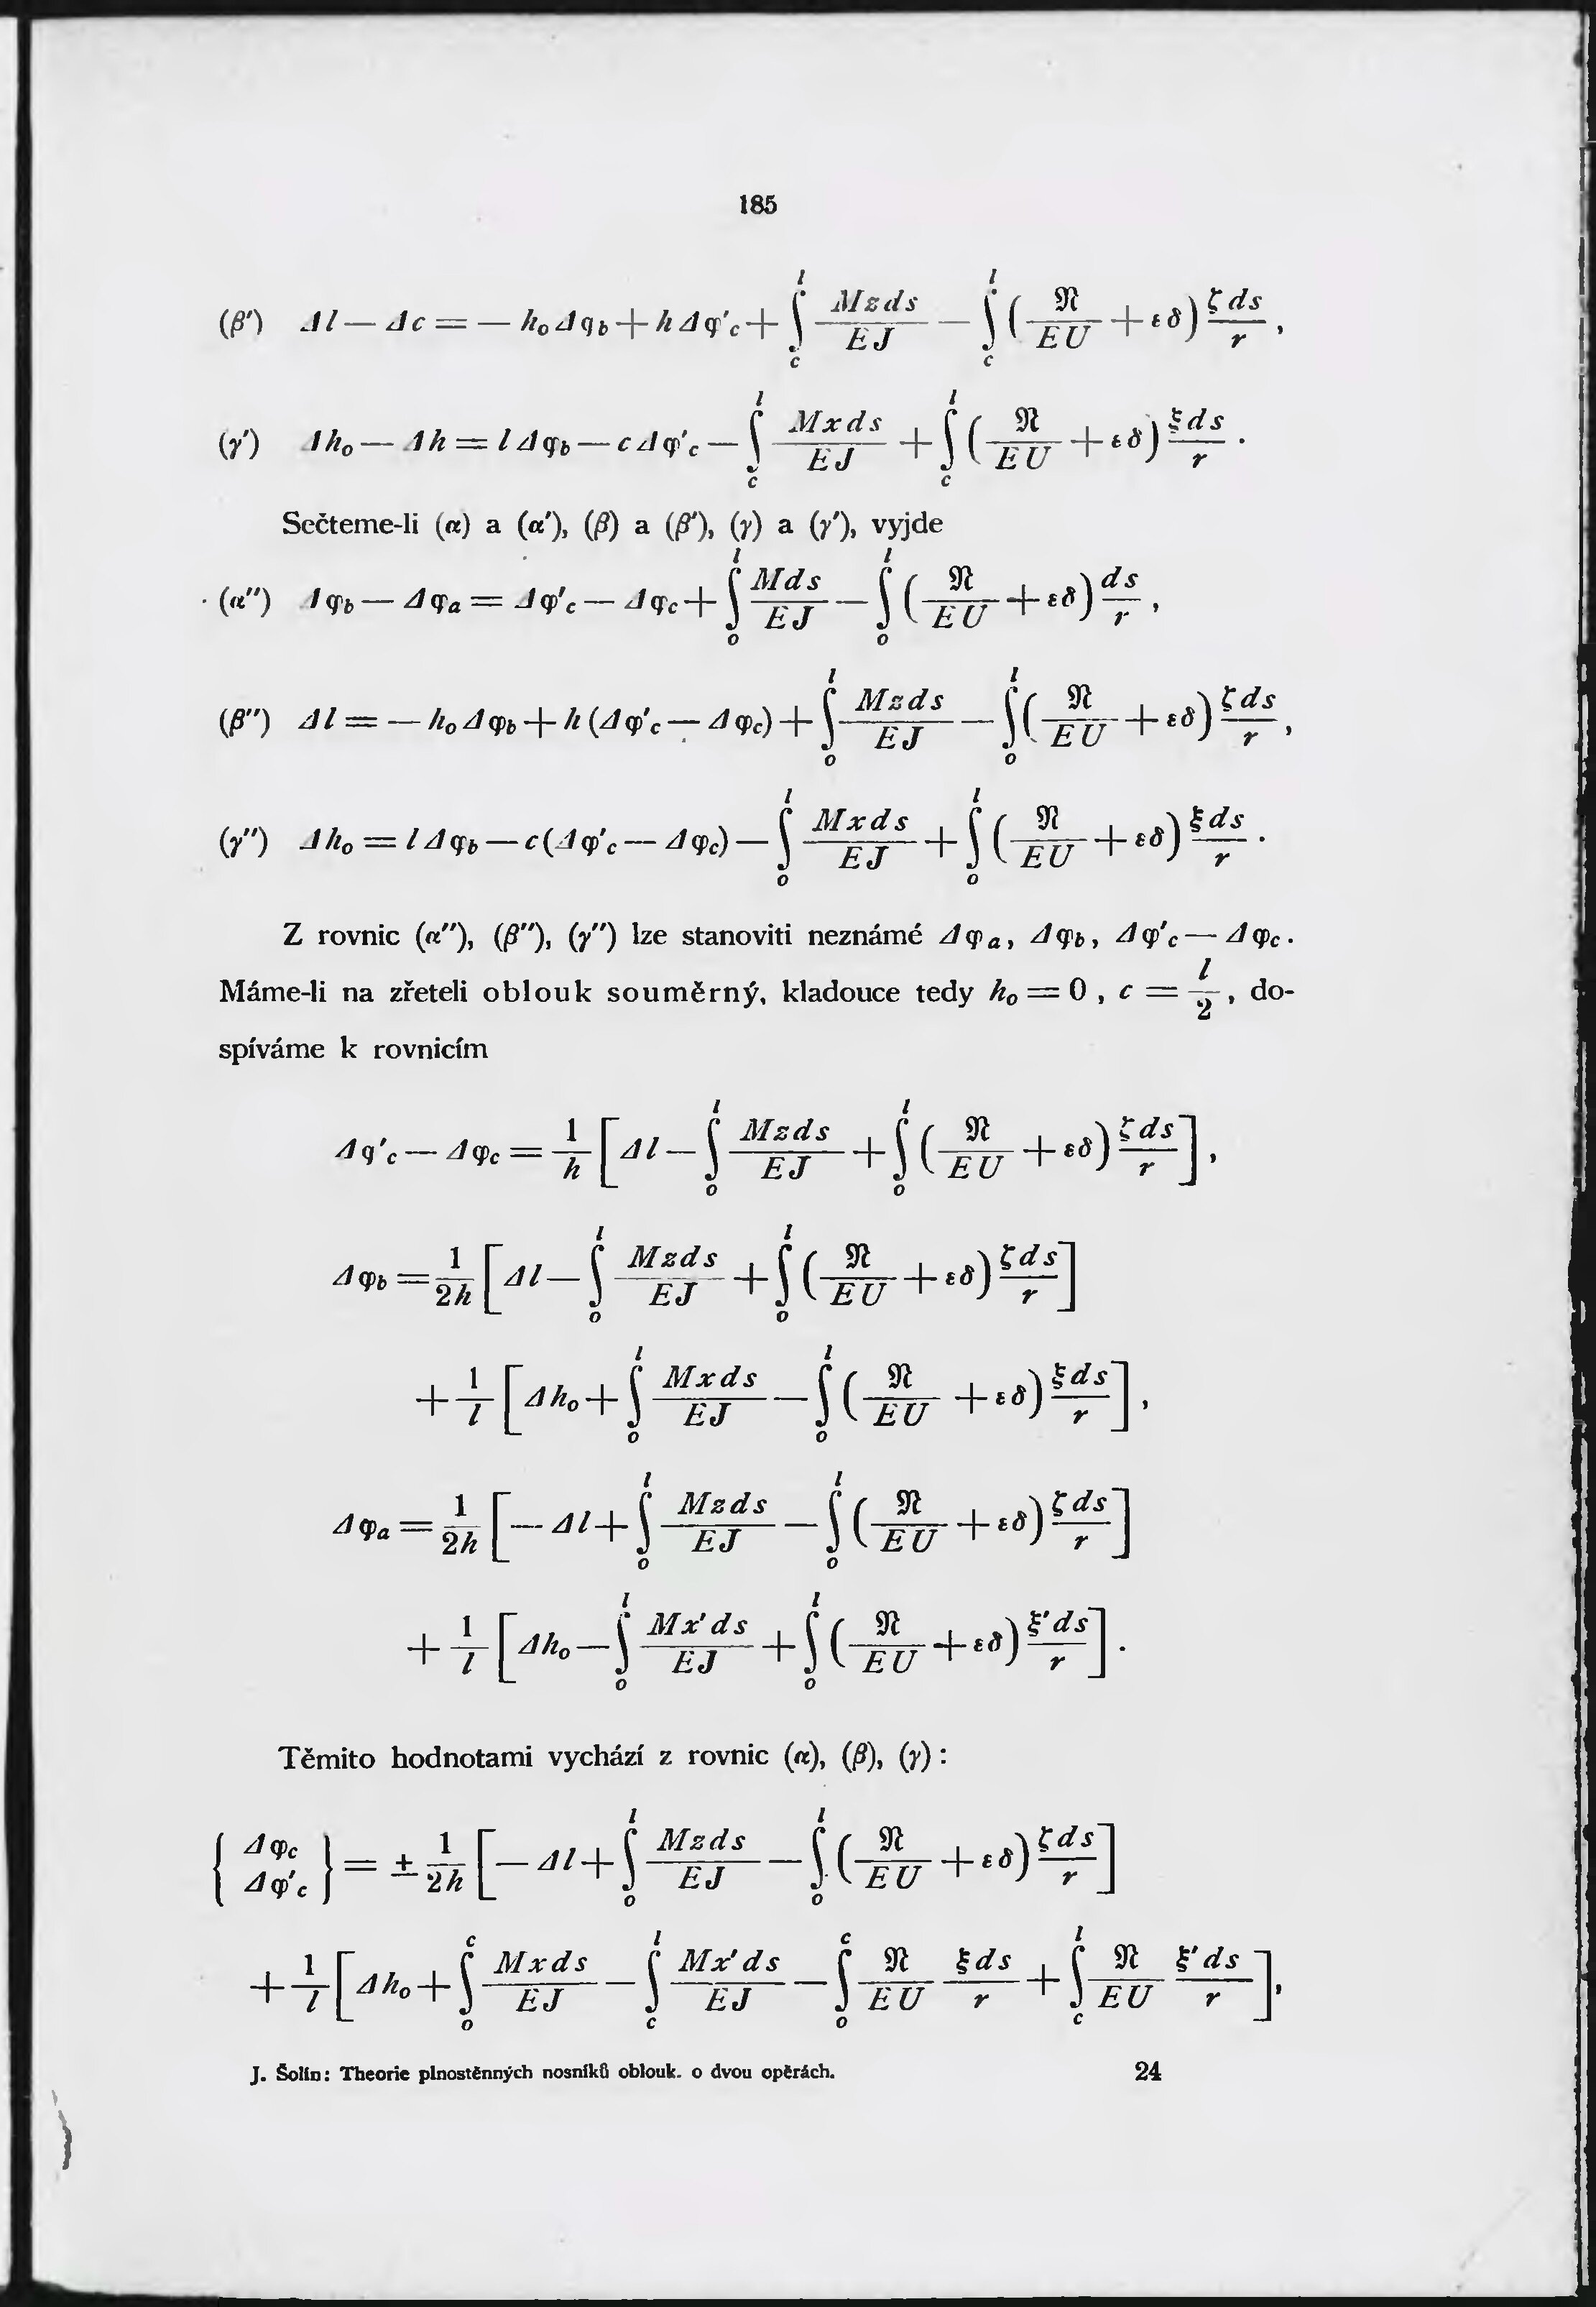 185
(β') Δl — Δc = — h₀Δφ_b + hΔφ'_c + ∫_c^l Mzds/EJ — ∫_c^l (𝔑/EU + εδ) ζds/r ,
(γ') Δh₀ — Δh = lΔφ_b — cΔφ'_c — ∫_c^l Mxds/EJ + ∫_c^l (𝔑/EU + εδ) ξds/r .
Sečteme-li (α) a (α'), (β) a (β'), (γ) a (γ'), vyjde
(α'') Δφ_b — Δφ_a = Δφ'_c — Δφ_c + ∫_0^l Mds/EJ — ∫_0^l (𝔑/EU + εδ) ds/r ,
(β'') Δl = — h₀Δφ_b + h(Δφ'_c — Δφ_c) + ∫_0^l Mzds/EJ — ∫_0^l (𝔑/EU + εδ) ζds/r ,
(γ'') Δh₀ = lΔφ_b — c(Δφ'_c — Δφ_c) — ∫_0^l Mxds/EJ + ∫_0^l (𝔑/EU + εδ) ξds/r .
Z rovnic (α''), (β''), (γ'') lze stanoviti neznámé Δφ_a, Δφ_b, Δφ'_c — Δφ_c.
Máme-li na zřeteli oblouk souměrný, kladouce tedy h₀ = 0 , c = l/2 , do-
spíváme k rovnicím
Δφ'_c — Δφ_c = 1/h [Δl — ∫_0^l Mzds/EJ + ∫_0^l (𝔑/EU + εδ) ζds/r] ,
Δφ_b = 1/2h [Δl — ∫_0^l Mzds/EJ + ∫_0^l (𝔑/EU + εδ) ζds/r]
+ 1/l [Δh₀ + ∫_0^l Mxds/EJ — ∫_0^l (𝔑/EU + εδ) ξds/r] ,
Δφ_a = 1/2h [— Δl + ∫_0^l Mzds/EJ — ∫_0^l (𝔑/EU + εδ) ζds/r]
+ 1/l [Δh₀ — ∫_0^l Mx'ds/EJ + ∫_0^l (𝔑/EU + εδ) ξ'ds/r] .
Těmito hodnotami vychází z rovnic (α), (β), (γ) :
{Δφ_c Δφ'_c} = ± 1/2h [— Δl + ∫_0^l Mzds/EJ — ∫_0^l (𝔑/EU + εδ) ζds/r]
+ 1/l [Δh₀ + ∫_0^c Mxds/EJ — ∫_c^l Mx'ds/EJ — ∫_0^c 𝔑/EU ξds/r + ∫_c^l 𝔑/EU ξ'ds/r],
J. Šolín: Theorie plnostěnných nosníků oblouk. o dvou opěrách. 24